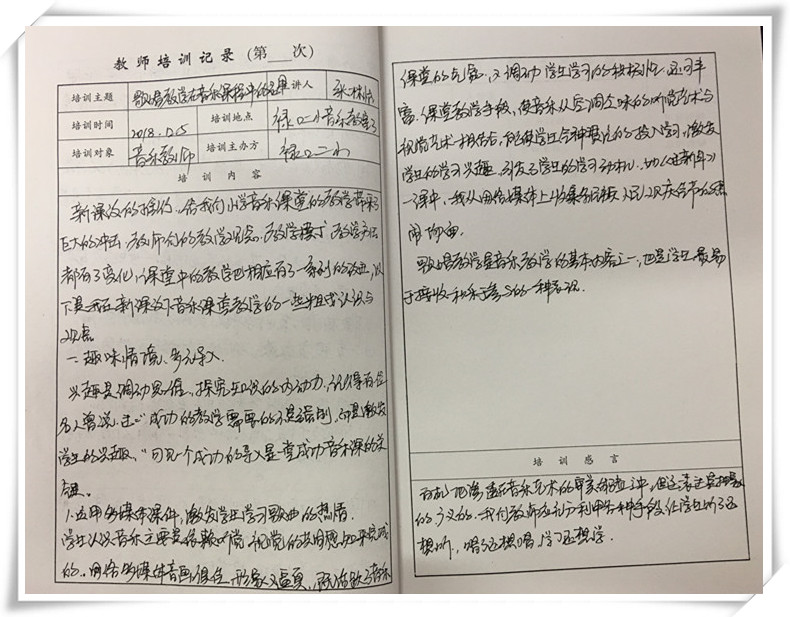 教师培训记录（第___次）
培训主题 歌唱教学在音乐课程中的 讲人
培训时间 2018. 培训地点 禄口二小音乐教室
培训对象 音乐教师 培训主办方 禄口二小
培训内容
新课改的 ，给我们小学音乐课堂的教学带来了
巨大的冲击，教师们的教学观念、教学模式、教学方法
都有了变化，课堂中的教学也相应有了一系列的改进，以
下是我在新课改下音乐课堂教学的一些粗浅认识与
观点
一、趣味情境、多元导入
兴趣是调动思维、探究知识的内动力，记得有位
名人曾说过：“成功的教学需要的不是强制，而是激发
学生的兴趣。”可见一个成功的导入是一堂成功音乐课的关
键。
1.运用多媒体课件，激发学生学习歌曲的热情.
学生认识音乐主要是依赖听觉、视觉的共同感知来完成
的。用给多媒体音画俱佳、形象又逼真，既活跃了音乐
课堂的气氛，又调动学生学习的积极性，还可丰
富课堂教学手段，使音乐从空洞乏味的听觉艺术与
视觉艺术相结合，能使学生全神贯注的投入学习，激发
学生的学习兴趣，引发了学生的学习动机。如《 新年》
一课中，我从网络媒体上收集各民族人民欢庆节的热
闹场面。
歌唱教学是音乐教学的基本内容之一，也是学生最易
于接收和乐于参与的一种表现
培训感言
有机地渗透在音乐艺术的审美体验之中，但这
的. 我们教师应充分利用各种手段让学生听了还
想听，唱了还想唱，学了还想学.